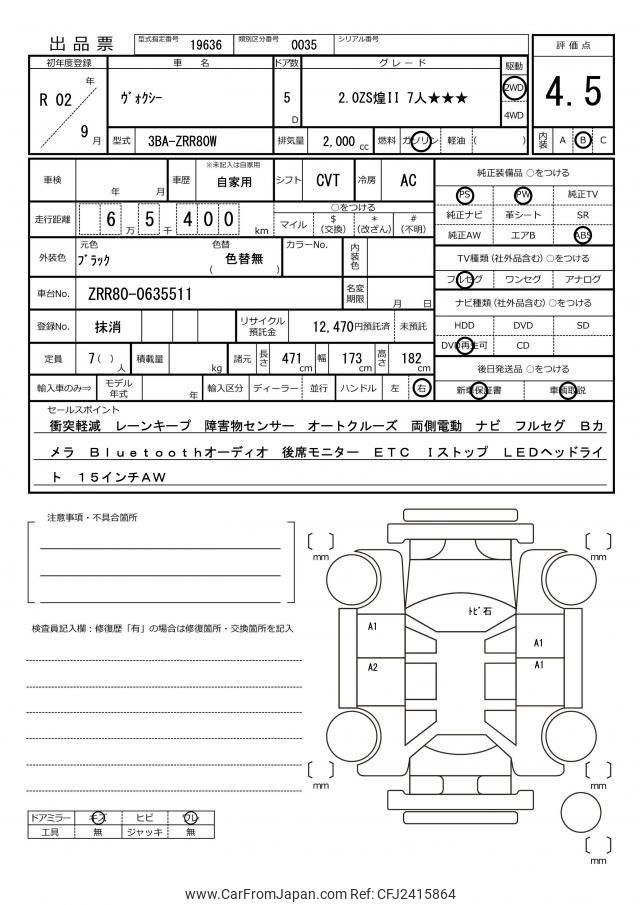 出品票
型式指定番号 19636 類別区分番号 0035 シリアル番号
評価点
4.5
内装 A B C
初年度登録 車名 ドア数 グレード 駆動
R 02 年 9 月
ヴォクシー 5 D 2.0ZS煌II 7人★★★ 2WD 4WD
型式 3BA-ZRR80W 排気量 2,000 cc 燃料 ガソリン 軽油 ( )
車検 年 月 車歴 ※未記入は自家用 自家用 シフト CVT 冷房 AC
走行距離 6 5 4 0 0 万 千 km
○をつける
マイル $ (交換) * (改ざん) # (不明)
外装色 元色 ブラック 色替 ( 色替無 ) カラーNo. 内装色
車台No. ZRR80-0635511 名変期限 月 日
登録No. 抹消 リサイクル預託金 12,470円預託済 未預託
定員 7( ) 人 積載量 kg 諸元 長さ 471 cm 幅 173 cm 高さ 182 cm
輸入車のみ⇒ モデル年式 年 輸入区分 ディーラー 並行 ハンドル 左 右
純正装備品 ○をつける
PS PW 純正TV
純正ナビ 革シート SR
純正AW エアB ABS
TV種類 (社外品含む) ○をつける
フルセグ ワンセグ アナログ
ナビ種類 (社外品含む) ○をつける
HDD DVD SD
DVD再生可 CD
後日発送品 ○をつける
新車保証書 車輌取説
セールスポイント
衝突軽減 レーンキープ 障害物センサー オートクルーズ 両側電動 ナビ フルセグ Bカ
メラ Bluetoothオーディオ 後席モニター ETC Iストップ LEDヘッドライ
ト 15インチAW
注意事項・不具合箇所
検査員記入欄：修復歴「有」の場合は修復箇所・交換箇所を記入
mm
mm
ﾄﾋﾞ石
A1
A1
A2
A1
mm
mm
mm
ドアミラー キズ ヒビ ワレ
工具 無 ジャッキ 無
www.CarFromJapan.com Ref: CFJ2415864